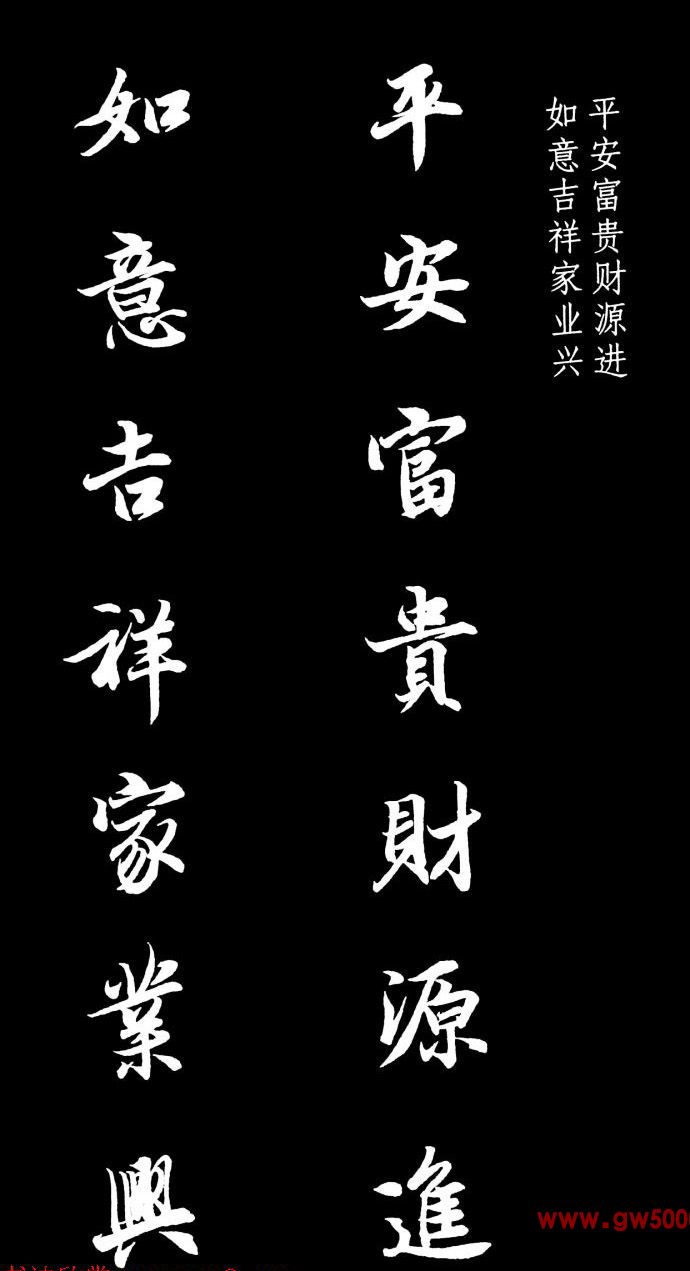 平安富贵财源进
如意吉祥家业兴
平安富貴財源進
如意吉祥家業興
www.gw500